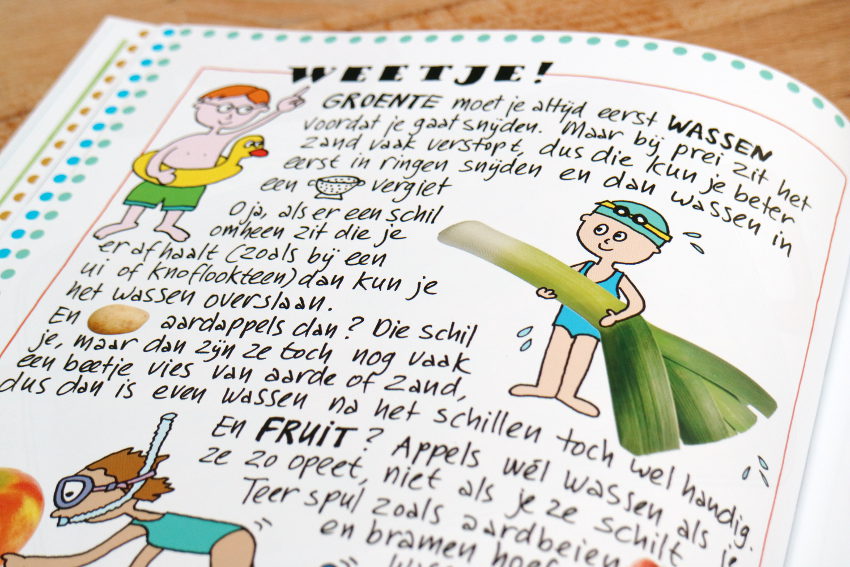 WEETJE!
GROENTE moet je altijd eerst WASSEN
voordat je gaat snijden. Maar bij prei zit het
zand vaak verstopt, dus die kun je beter
eerst in ringen snijden en dan wassen in
een vergiet
Oja, als er een schil
omheen zit die je
er afhaalt (zoals bij een
ui of knoflookteen) dan kun je
het wassen overslaan.
En aardappels dan? Die schil
je, maar dan zijn ze toch nog vaak
een beetje vies van aarde of zand,
dus dan is even wassen na het schillen toch wel handig.
En FRUIT? Appels wél wassen als je
ze zo opeet, niet als je ze schilt
Teer spul zoals aardbeien
en bramen hoef